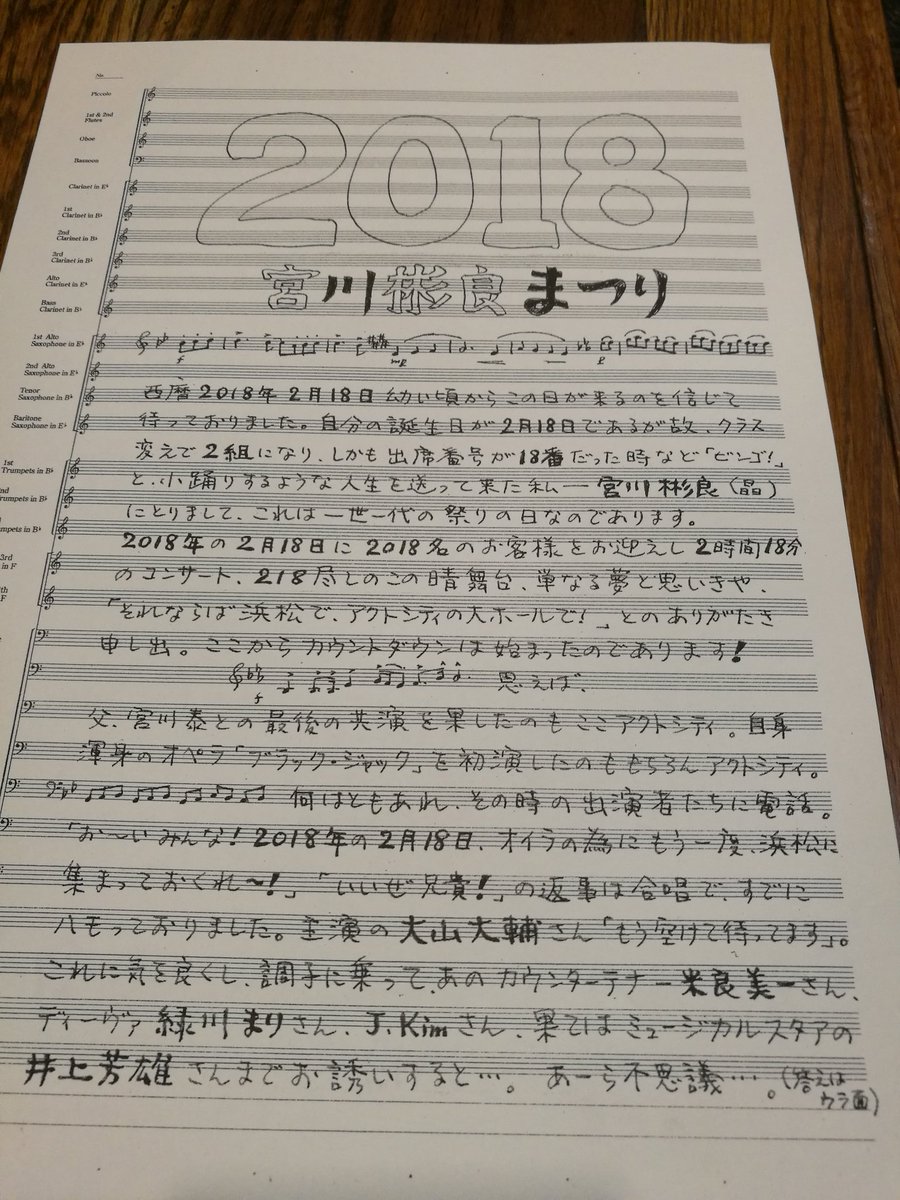 No.
Piccolo
1st & 2nd
Flutes
Oboe
Bassoon
Clarinet in E♭
1st
Clarinet in B♭
2nd
Clarinet in B♭
3rd
Clarinet in B♭
Alto
Clarinet in E♭
Bass
Clarinet in B♭
1st Alto
Saxophone in E♭
2nd Alto
Saxophone in E♭
Tenor
Saxophone in B♭
Baritone
Saxophone in E♭
1st
Trumpets in B♭
2nd
Trumpets in B♭
3rd
in F
2018
宮川彬良まつり
f
mp
f
西暦2018年2月18日 幼い頃からこの日が来るのを信じて
待っておりました。自分の誕生日が2月18日であるが故、クラス
変えで2組になり、しかも出席番号が18番だった時など「ビンゴ!」
と、小踊りするような人生を送って来た私─宮川彬良(晶)
にとりまして、これは一世一代の祭りの日なのであります。
2018年の2月18日に2018名のお客様をお迎えし2時間18分
のコンサート、218尽しのこの晴舞台、単なる夢と思いきや、
「それならば浜松で、アクトシティの大ホールで!」とのありがたき
申し出。ここからカウントダウンは始まったのであります!
f
思えば、
父、宮川泰との最後の共演を果したのもここアクトシティ。自身
渾身のオペラ「ブラック・ジャック」を初演したのももちろんアクトシティ。
何はともあれ、その時の出演者たちに電話。
「お〜いみんな!2018年の2月18日、オイラの為にもう一度、浜松に
集まっておくれ〜!」「いいぜ兄貴!」の返事は合唱で、すでに
ハモっておりました。主演の大山大輔さん「もう空けて待ってます」。
これに気を良くし、調子に乗って、あのカウンターテナー米良美一さん、
ディーヴァ緑川まりさん、J.Kimさん、果てはミュージカルスタアの
井上芳雄さんまでお誘いすると…。あーら不思議…。(答えは
ウラ面)